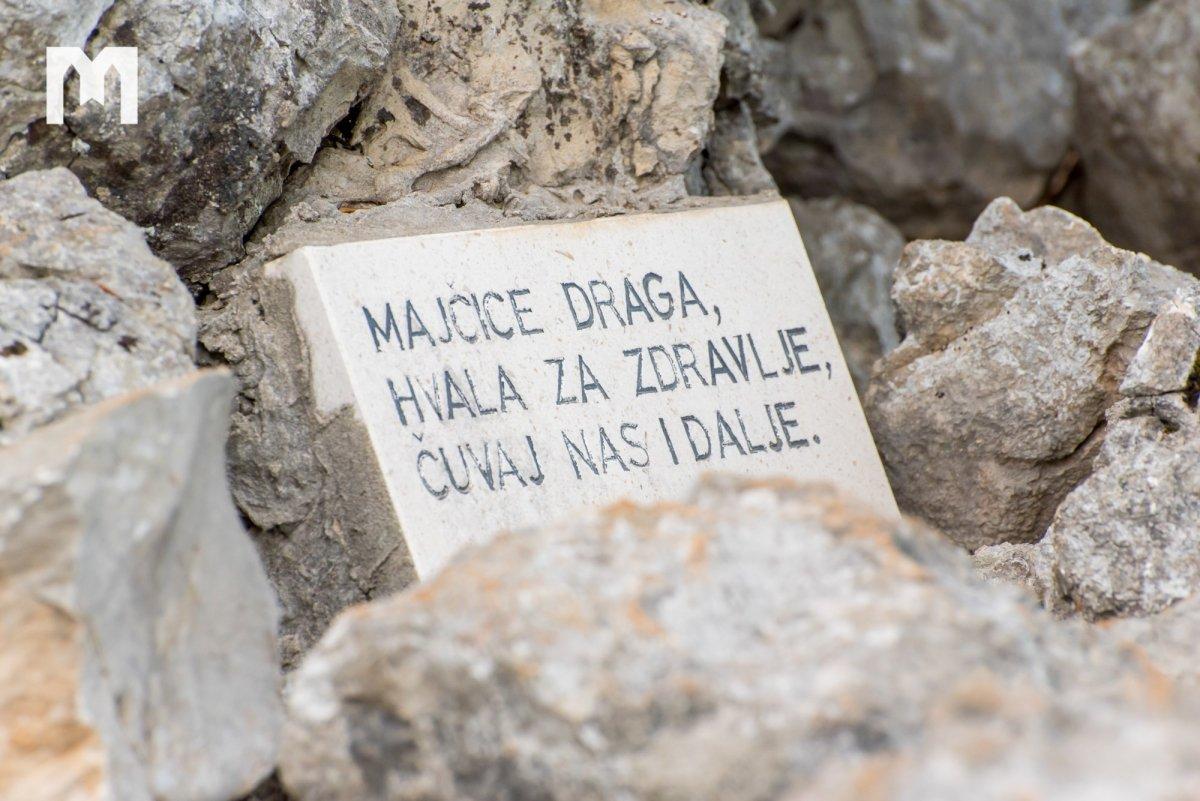 MAJČICE DRAGA,
HVALA ZA ZDRAVLJE,
ČUVAJ NAS I DALJE.